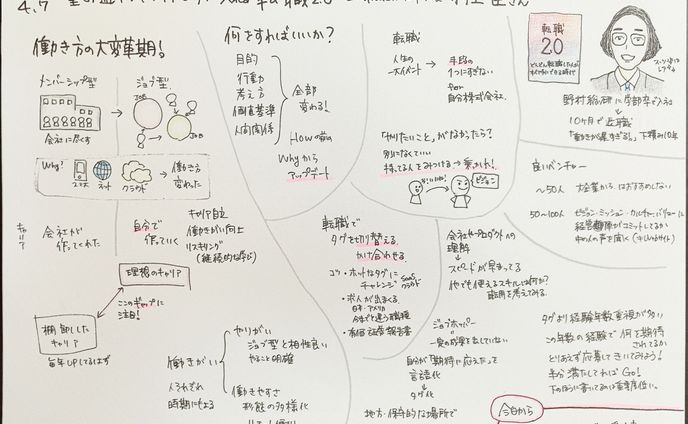 働き方の大変革期!
メンバーシップ型
ジョブ型
会社に尽くす
JOB
JOB
Why?
スマホ
ネット
クラウド
働き方
変わった
会社が
作ってくれた
自分で
作っていく
キャリア自立
働きがい向上
リスキリング
(継続的な学び)
理想のキャリア
このギャップに
注目!
棚卸しした
キャリア
毎年UPしてるはず
働きがい
人それぞれ
時期にもよる
やりがい
ジョブ型と相性良い
やること明確
働きやすさ
形態の多様化
何をすればいいか?
目的
行動
考え方
価値基準
人間関係
全部
変わる!
Howの前に
Whyから
アップデート
転職
人生の
一大イベント
手段の
1つにすぎない
自分株式会社
「やりたいこと」がなかったら?
別になくていい
持ってる人をみつける
乗っかれ!
ビジョン
転職で
タグを切り替える
かけ合わせる
コツ・ホットなタグに
チャレンジ
SaaS
クラウド
・求人が出まくる
日本・アメリカ
今までと違う職種
・有価証券報告書
会社やプロダクトへの
理解
スピードが早まってる
他でも使えるスキルは何か?
転用を考えてみる
ジョブホッパー
一定の成果を出していない
自分が「期待に応えた」を
言語化
タグ化
地方・保守的な場所で
転職
2.0
野村総研に学部卒で入社
10ヶ月で退職
下積み10年
良いベンチャー
~50人
大企業からはおすすめしない
50~100人
ビジョン・ミッション・カルチャー・バリューに
経営陣がコミットしてるか
中の人の声を聞く
タグより経験年数重視が多い
この年数の経験で何を期待
されてるか
とりあえず応募してきいてみよう!
半分満たしてればGo!
下のほうに書いてあるのは重要度低い。
今日から